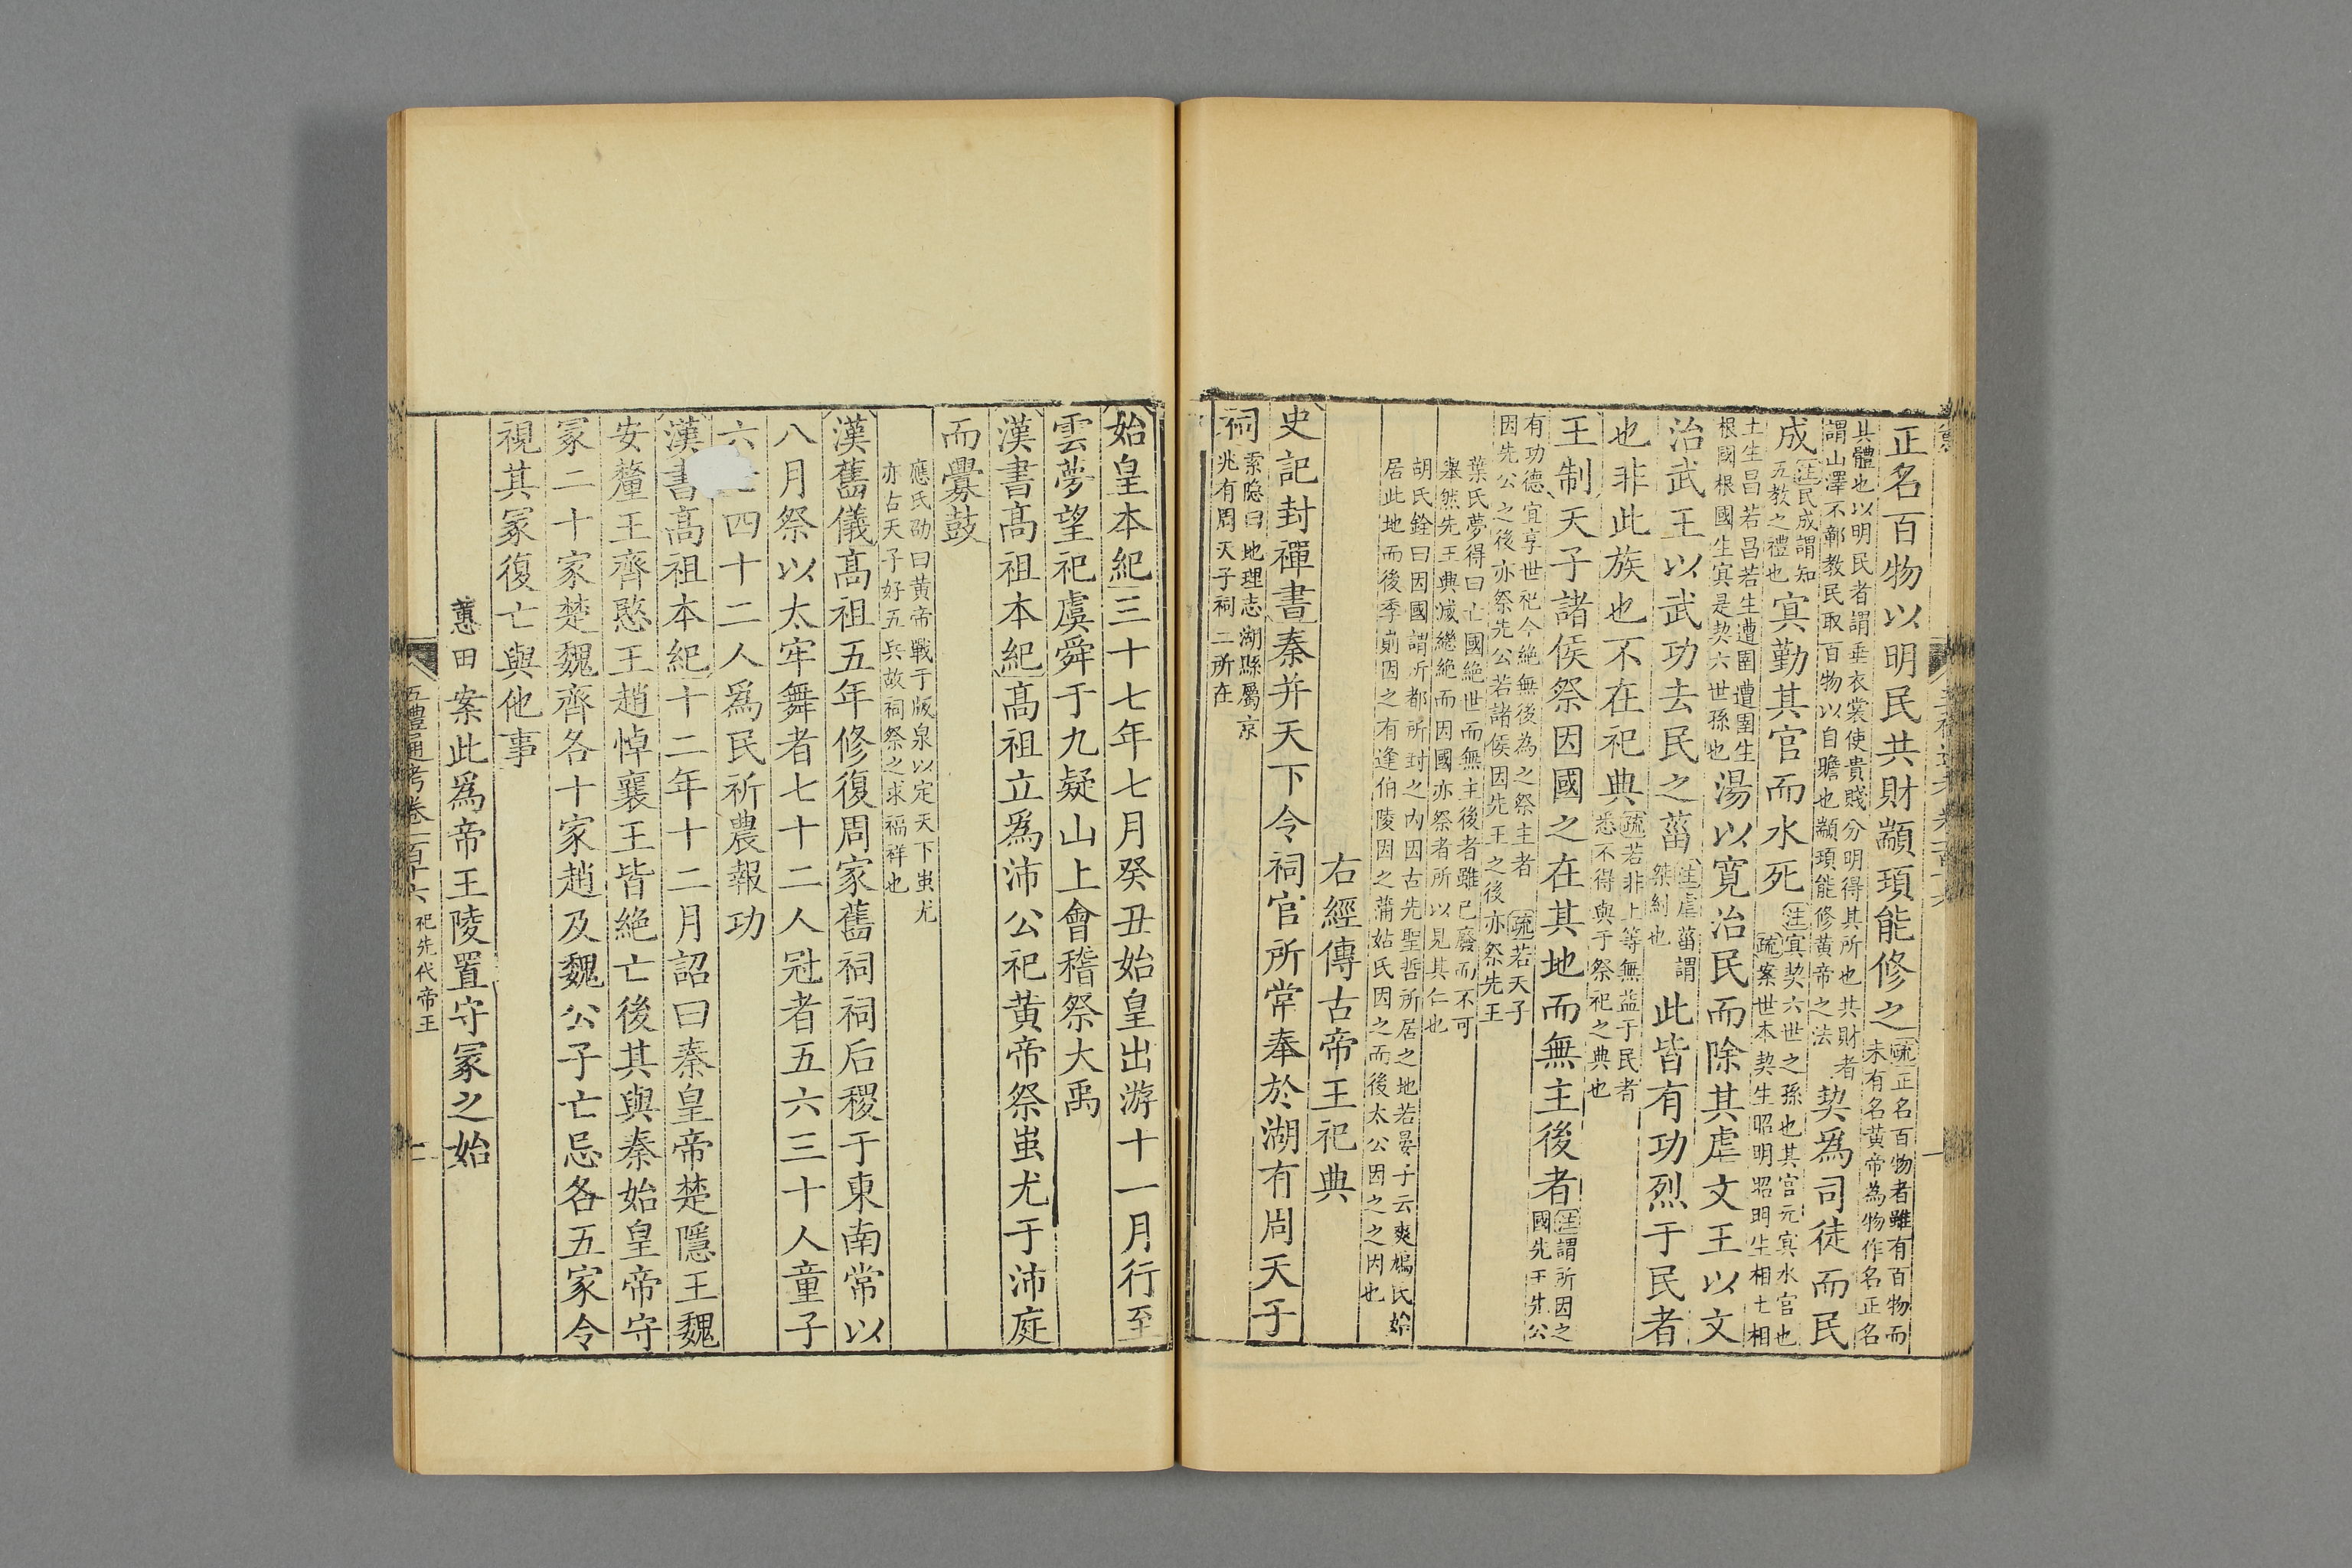 正名百物以明民共財顓頊能修之疏正名百物者雖有百物而
未有名黃帝為物作名正名
其體也以明民者謂垂衣裳使貴賤分明得其所也共財者
謂山澤不鄣教民取百物以自贍也顓頊能修黃帝之法契爲司徒而民
成注民成謂知
五教之禮也冥勤其官而水死注冥契六世之孫也其官元冥水官也
疏案世本契生昭明昭明生相土相
土生昌若昌若生遭圉遭圉生
根國根國生冥是契六世孫也湯以寬治民而除其虐文王以文
治武王以武功去民之菑注虐菑謂
桀紂也此皆有功烈于民者
也非此族也不在祀典疏若非上等無益于民者
悉不得與于祭祀之典也
王制天子諸侯祭因國之在其地而無主後者注謂所因之
國先王先公
有功德宜享世祀今絶無後為之祭主者疏若天子
因先公之後亦祭先公若諸侯因先王之後亦祭先王
葉氏夢得曰亡國絶世而無主後者雖已廢而不可
舉然先王典滅繼絶而因國亦祭者所以見其仁也
胡氏銓曰因國謂所都所封之内因古先聖哲所居之地若晏子云爽鳩氏始
居此地而後季萴因之有逢伯陵因之蒲姑氏因之而後太公因之之因也
右經傳古帝王祀典
史記封禪書秦并天下令祠官所常奉於湖有周天子
祠索隐曰地理志湖縣屬京
兆有周天子祠二所在
始皇本紀三十七年七月癸丑始皇出游十一月行至
雲夢望祀虞舜于九疑山上會稽祭大禹
漢書高祖本紀高祖立爲沛公祀黃帝祭蚩尤于沛庭
而釁鼓
應氏劭曰黃帝戰于版泉以定天下蚩尤
亦占天子好五兵故祠祭之求福祥也
漢舊儀高祖五年修復周家舊祠祠后稷于東南常以
八月祭以太牢舞者七十二人冠者五六三十人童子
六七四十二人爲民祈農報功
漢書高祖本紀十二年十二月詔曰秦皇帝楚隱王魏
安釐王齊愍王趙悼襄王皆絶亡後其與秦始皇帝守
冢二十家楚魏齊各十家趙及魏公子亡忌各五家令
視其冢復亡與他事
蕙田案此爲帝王陵置守冢之始
五禮通考卷一百十六祀先代帝王